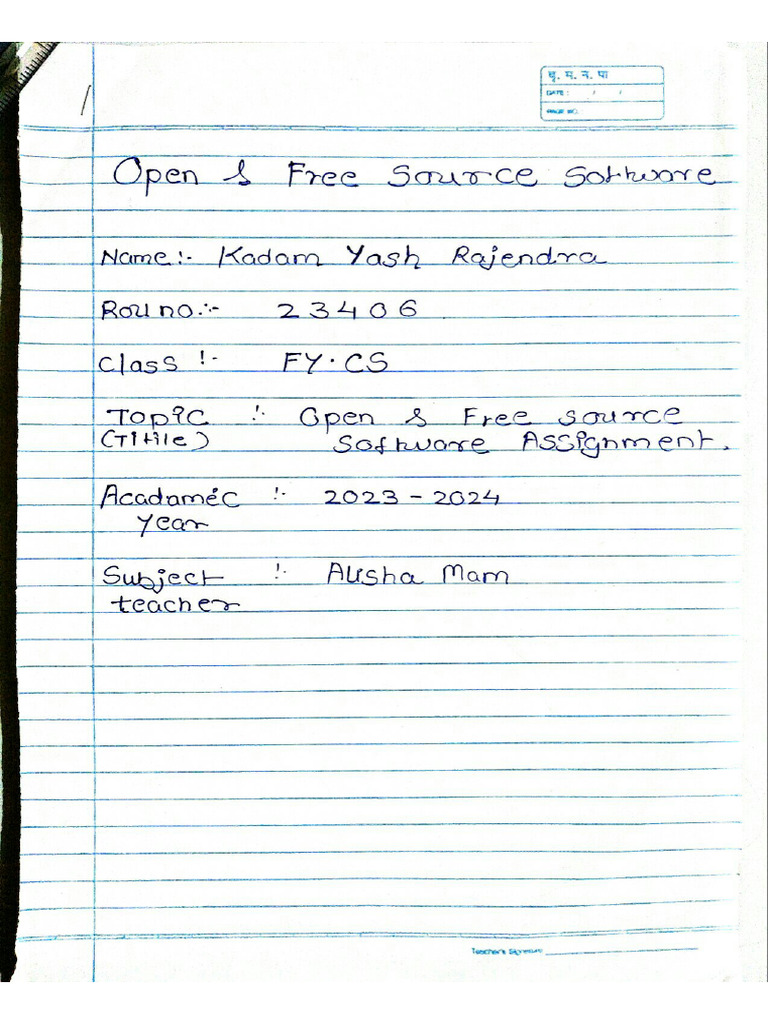 पृ. म. न. पा
DATE: / /
PAGE NO.
/
Open & Free Source Software
Name:- Kadam Yash Rajendra
Roll no.:- 23406
Class :- FY.CS
Topic :- Open & Free source
(Titile) Software Assignment.
Acadamic :- 2023-2024
year
Subject :- Alisha Mam
teacher
Teacher's Signature